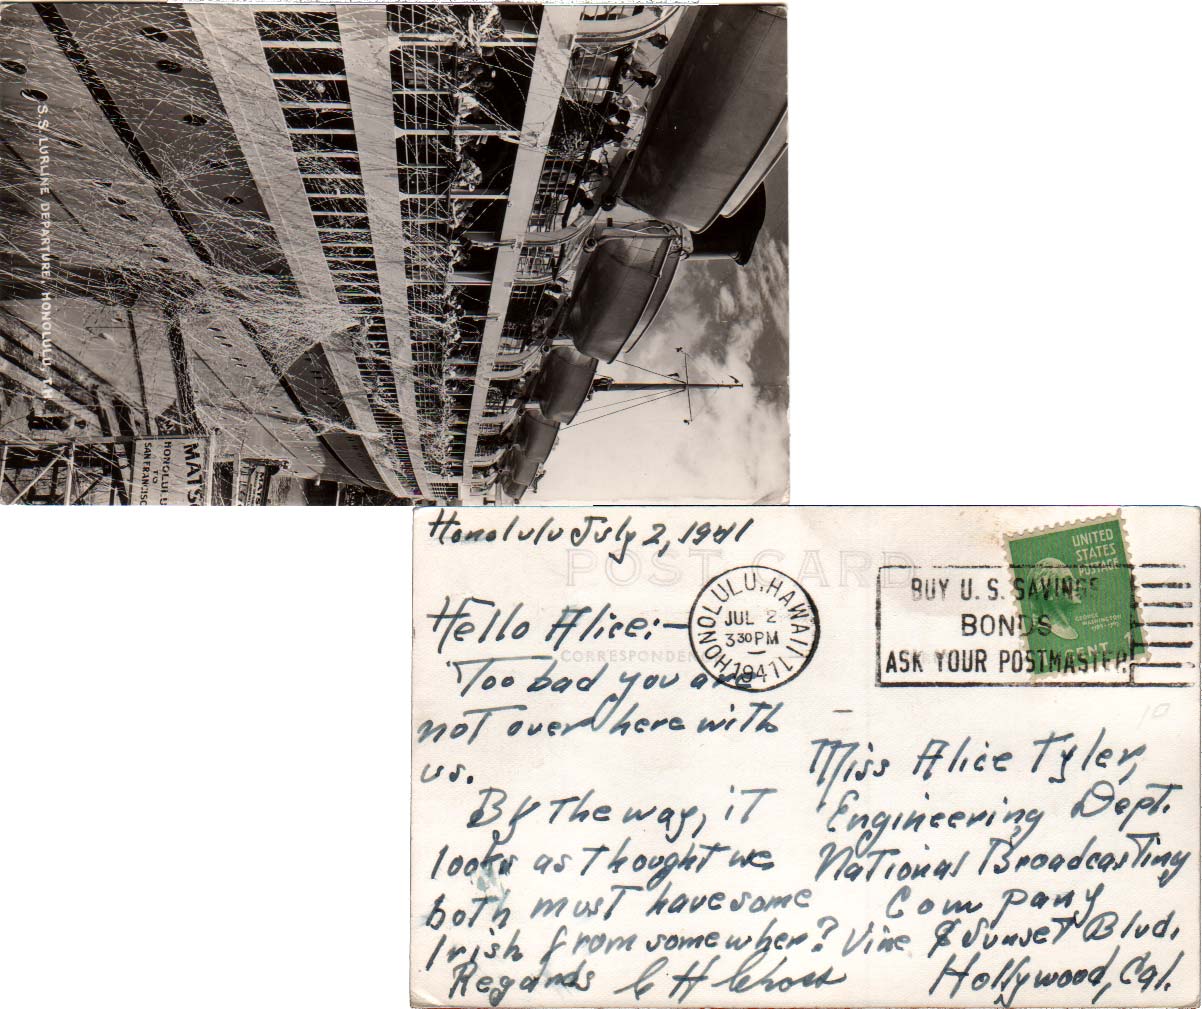 S.S. LURLINE DEPARTURE, HONOLULU, T.H.
MATS
HONOLULU
TO
SAN FRANCISC
Honolulu July 2, 1941
POST CARD
HONOLULU, HAWAII
JUL 2
3 30 PM
1941
BUY U.S. SAVINGS
BONDS
ASK YOUR POSTMASTER
UNITED
STATES
POSTAGE
GEORGE
WASHINGTON
1789-1797
1 CENT
CORRESPONDEN
Hello Alice:-
Too bad you are
not over here with
us.
By the way, it
looks as thought we
both must have some
Irish from somewher?
Regards C H
Miss Alice Tyler,
Engineering Dept.
National Broadcasting
Company
Vine & Sunset Blvd.
Hollywood, Cal.